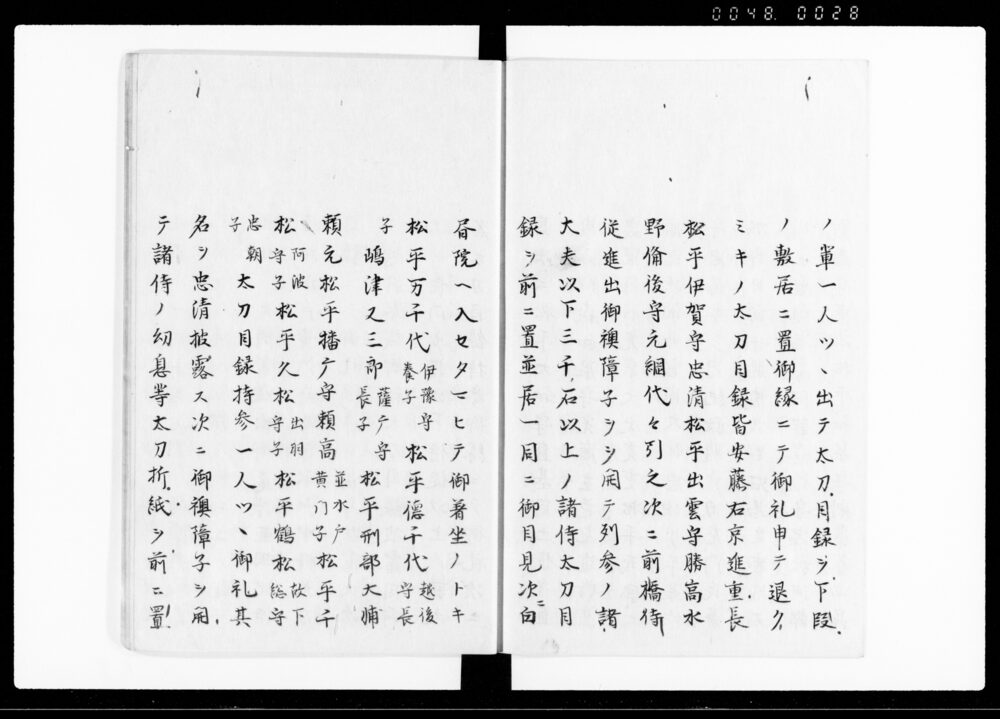 0048. 0028
ノ輩一人ツヽ出テ太刀目録ヲ下段
ノ敷居ニ置御縁ニテ御礼申テ退ク
ミキノ太刀目録皆安藤右京進重長
松平伊賀守忠清松平出雲守勝高水
野備後守元綱代々引之次ニ前橋侍
従進出御襖障子ヲシ開テ列参ノ諸
大夫以下三千石以上ノ諸侍太刀目
録ヲ前ニ置並居一同ニ御目見次ニ白
書院ヘ入セタマヒテ御着坐ノトキ
松平万千代伊豫守養子松平徳千代越後守長
子嶋津又三郎薩广守長子松平刑部大輔
頼元松平播广守頼高並水戸黄门子松平千
松阿波守子松平久松出羽守子松平鶴松故下総守
忠朝子太刀目録持参一人ツヽ御礼其
名ヲ忠清披露ス次ニ御襖障子ヲ開
テ諸侍ノ幼息等太刀折紙ヲ前ニ置